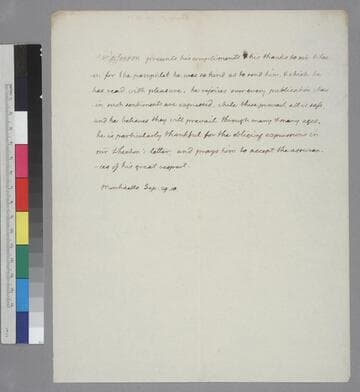 Th: Jefferson presents his compliments & his thanks to mr Whea-
-on for the pamphlet he was so kind as to send him, & which he
has read with pleasure. he rejoices over every publication wher-
in such sentiments are expressed. while these prevail all is safe,
and he believes they will prevail through many & many ages.
he is particularly thankful for the obliging expressions in
mr Wheaton's letter, and prays him to accept the assuran-
-ces of his great respect.
Monticello Sep. 29.